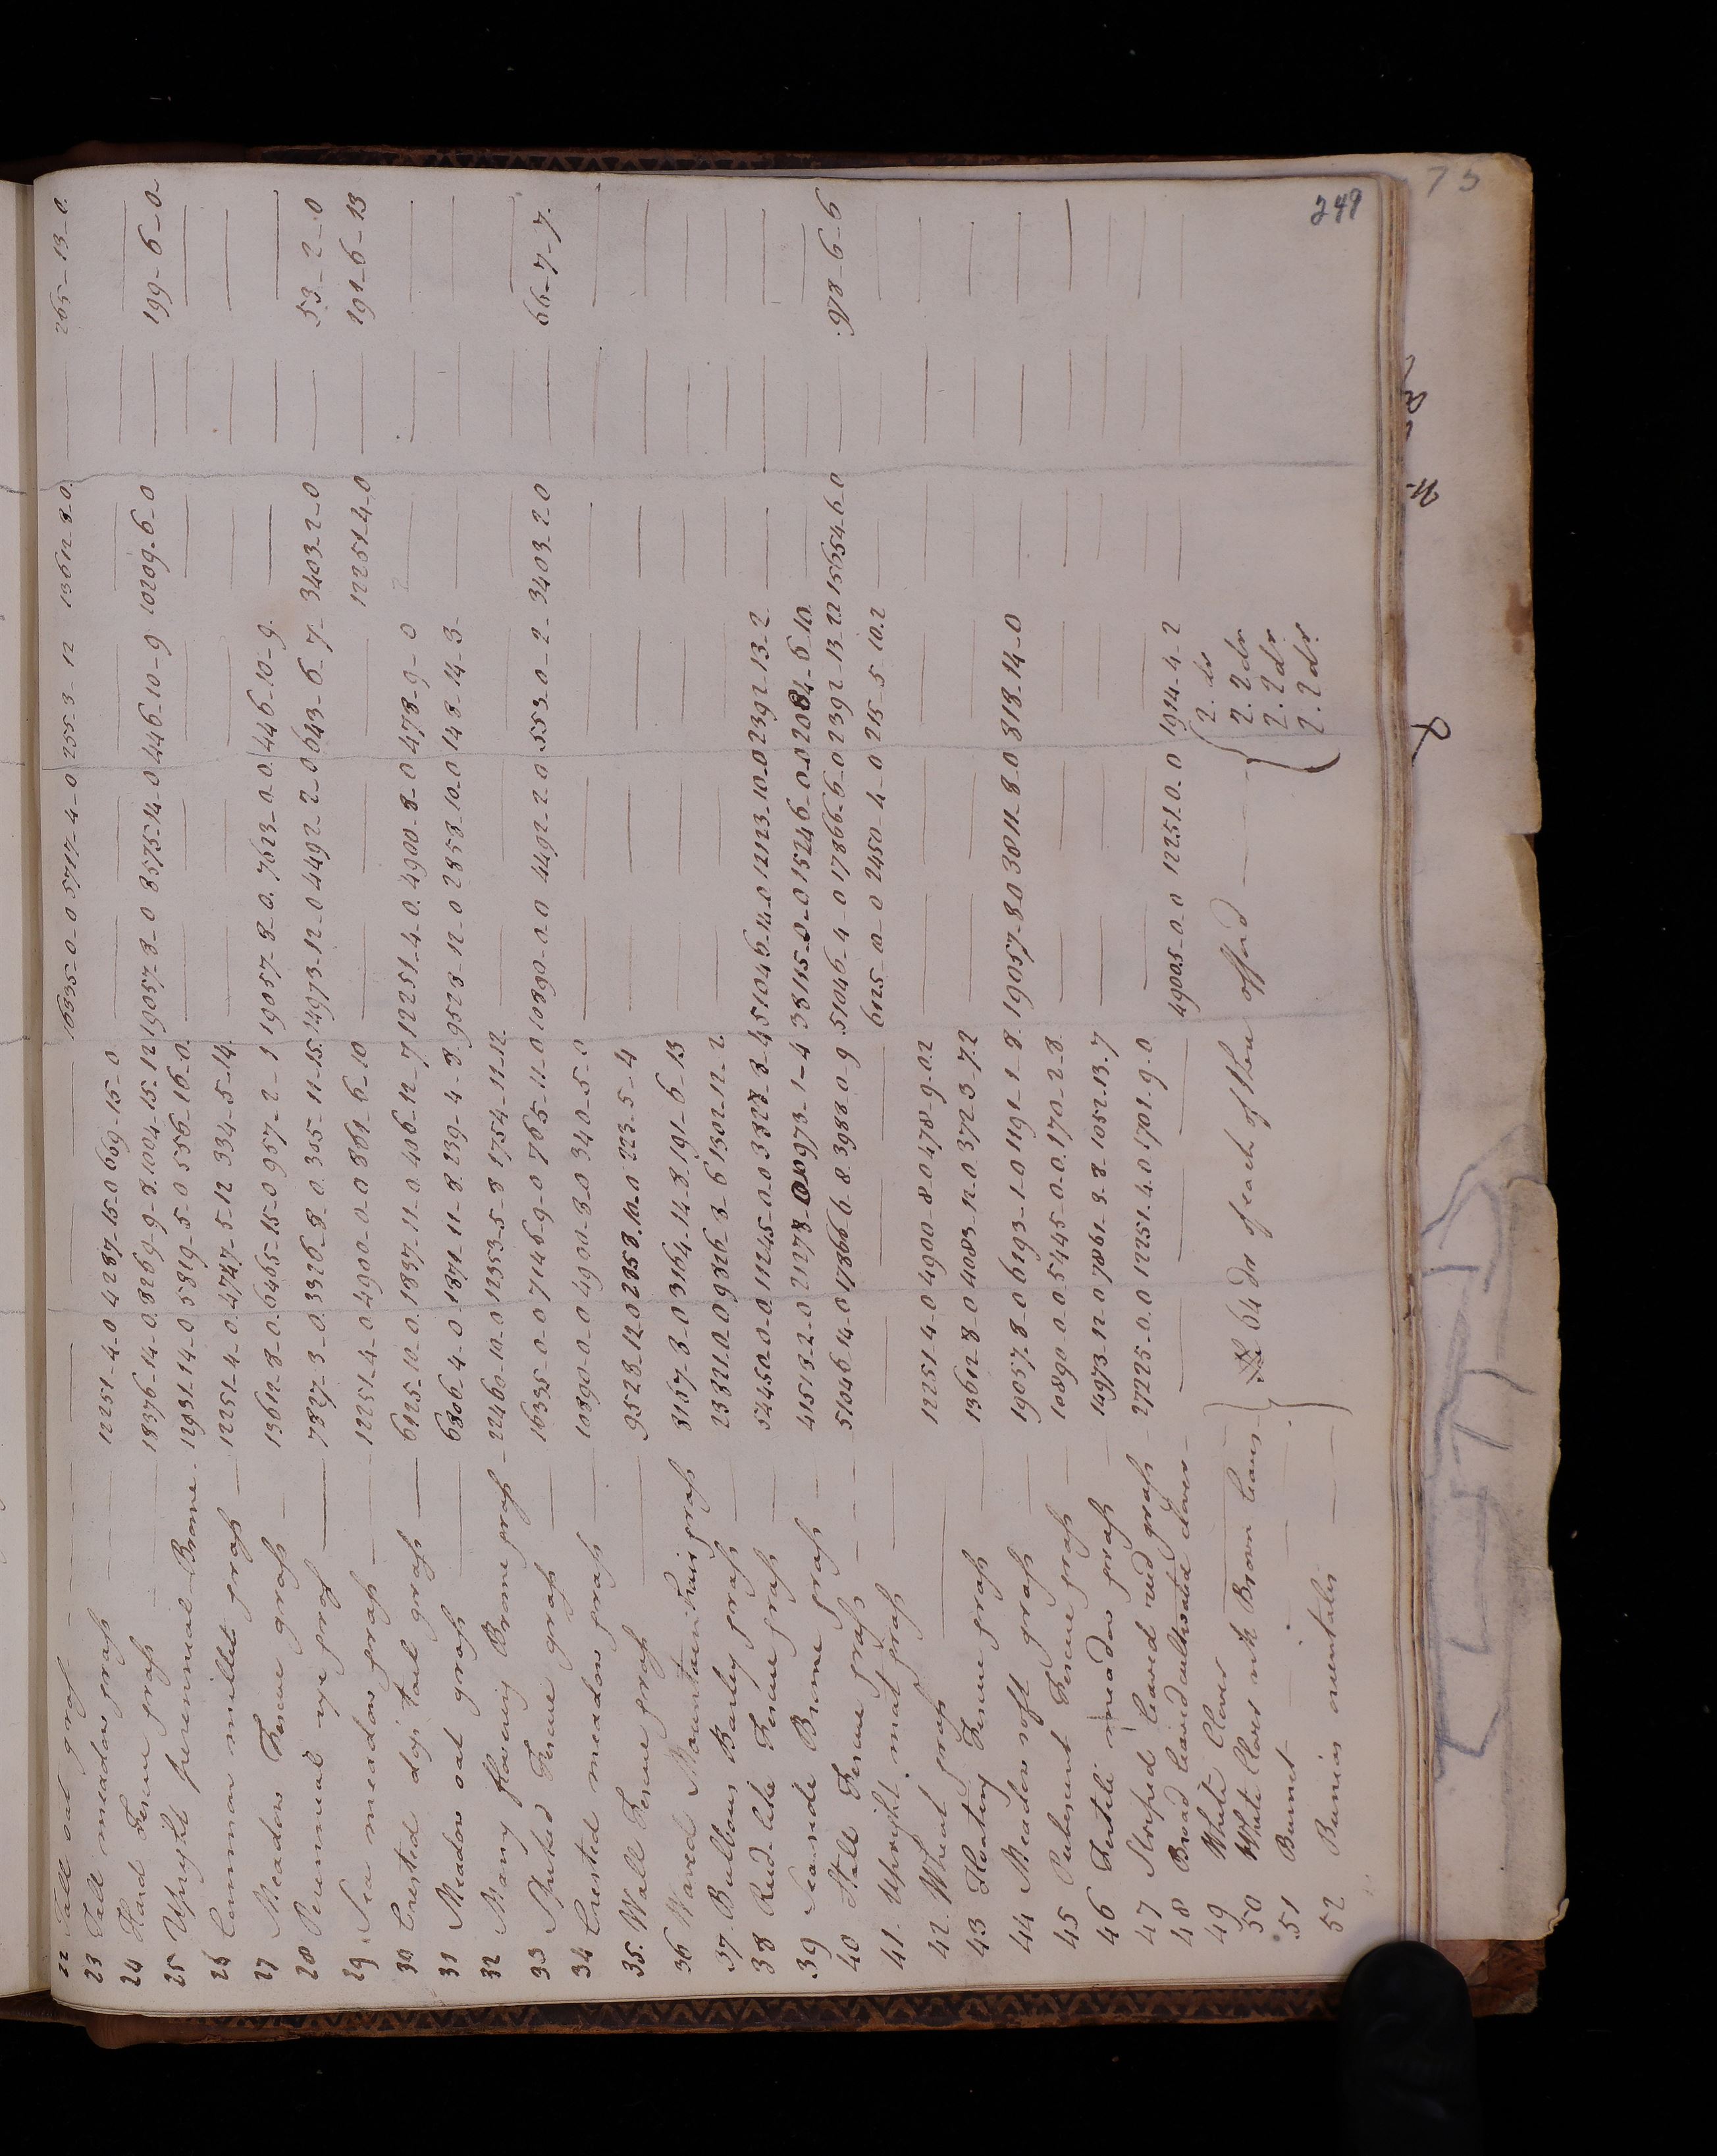 249
22 Tall oat grass — 16335-0-0 5717-4-0 255-3-12 13612-8-0 — 265-13-0
23 Tall meadow grass 12251-4-0 4287-15-0 669-15-0 — — — — —
24 Hard Fescue grass — 18376-14-0 8269-9-8 1004-15-12 19057-8-0 8575-14-0 446-10-9 10209-6-0 — 199-6-0
25 Upright perennial Brome 12931-14-0 5819-5-0 556-16-0 — — —
26 Common millet grass — 12251-4-0 4747-5-12 334-5-14 — — —
27 Meadow Fescue grass — 13612-8-0 6465-15-0 957-2-1 19057-8-0 7623-0-0 446-10-9 — — —
28 Perennial rye grass — 7827-3-0 3326-8-0 305-11-15 14973-12-0 4492-2-0 643-6-7 3403-2-0 — 53-2-0
29 Sea meadow grass — 12251-4-0 4900-0-0 861-6-10 — — — 12251-4-0 — 191-6-13
30 Crested dogs tail grass — 6125-10-0 1837-11-0 406-12-7 12251-4-0 4900-8-0 478-9-0 — —
31 Meadow oat grass — 6806-4-0 1871-11-8 239-4-8 9528-12-0 2858-10-0 148-14-3 — — —
32 Many flowering Brome grass — 22460-10-0 12353-5-8 1754-11-12 — — —
33 Spiked Fescue grass — 16335-0-0 7146-9-0 765-11-0 10890-0-0 4492-2-0 553-0-2 3403-2-0 — 66-7-7
34 Crested meadow grass — 10890-0-0 4900-8-0 340-5-0 — — —
35 Wall Fescue grass 9528-12-0 2858-10-0 223-5-4 — — —
36 Waved Mountain Hair grass 8167-8-0 3164-14-8 191-6-13 — — —
37 Bulbous Barley grass — 23821-0-0 9826-3-6 1302-12-2 — — —
38 Reed-like Fescue grass — 54450-0-0 11245-0-0 3828-8-4 51046-14-0 12123-10-0 2392-13-2 — — —
39 Seaside Brome grass — 41518-2-0 21278-0-0 973-1-4 38115-0-0 15246-0-0 2084-6-10 — —
40 Stall Fescue grass — 51046-14-0 17866-6-8 3988-0-9 51046-4-0 17866-6-0 2392-13-12 15654-6-0 — 978-6-6
41 Upright mat grass — — — 6125-10-0 2450-4-0 215-5-10.2 — —
42 Wheat grass — 12251-4-0 4900-8-0 478-9-0.2 — — —
43 Floating Fescue grass — 13612-8-0 4083-12-0 372-3-7.2 — — —
44 Meadow soft grass — 19057-8-0 6193-1-0 1191-1-8 19057-8-0 3811-8-0 818-14-0 — —
45 Pubescent Fescue grass — 10890-0-0 5445-0-0 170-2-8 — — —
46 Fertile meadow grass — 14973-12-0 7861-3-8 1052-13-7 — — —
47 Striped leaved reed grass — 27225-0-0 12251-4-0 1701-9-0 — — —
48 Broad leaved cultivated clover — — — 49005-0-0 12251-0-0 1914-4-2 —
49 White Clover
50 White Clover with Brown leaves
51 Burnet
52 Bunias orientalis
64 dr of each of these afford
2. dr
2. 2 dr
2. 2 dr
2. 2 dr.
75